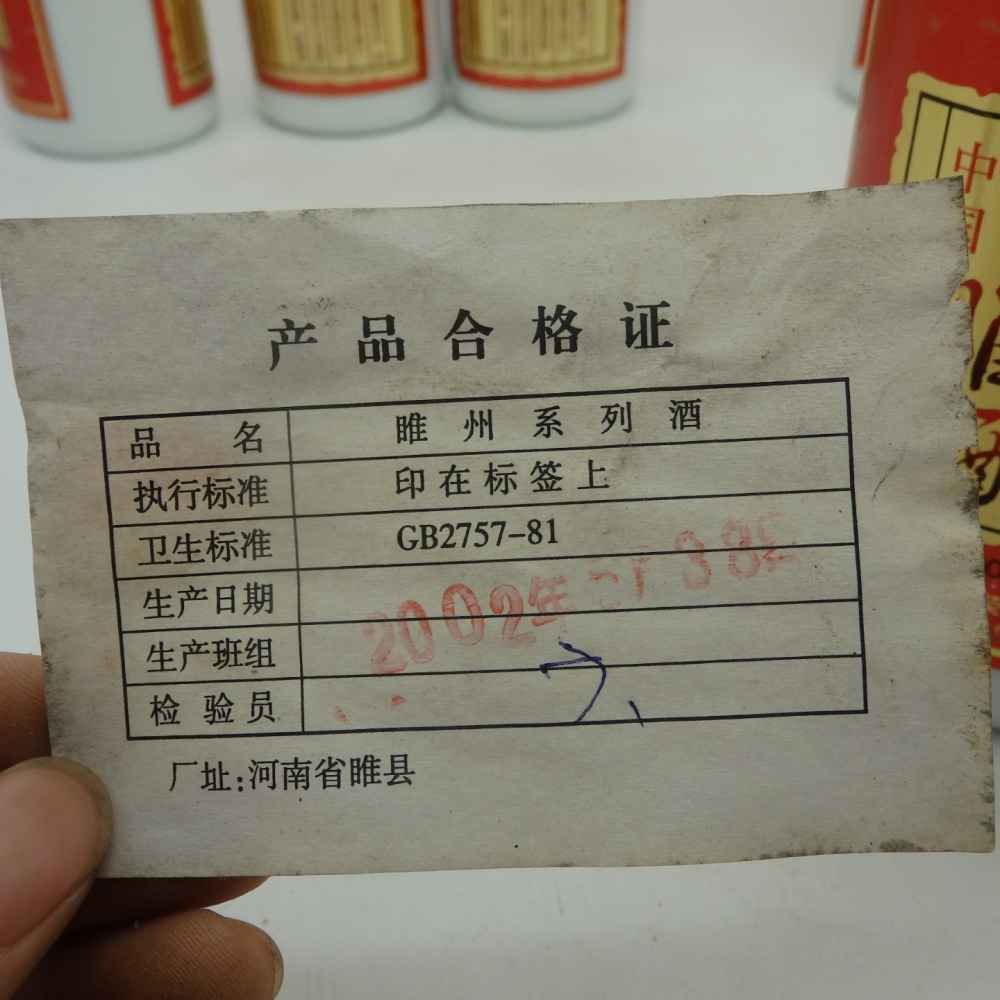 产品合格证
品名 睢州系列酒
执行标准 印在标签上
卫生标准 GB2757-81
生产日期 2002年
生产班组
检验员
厂址:河南省睢县
中国